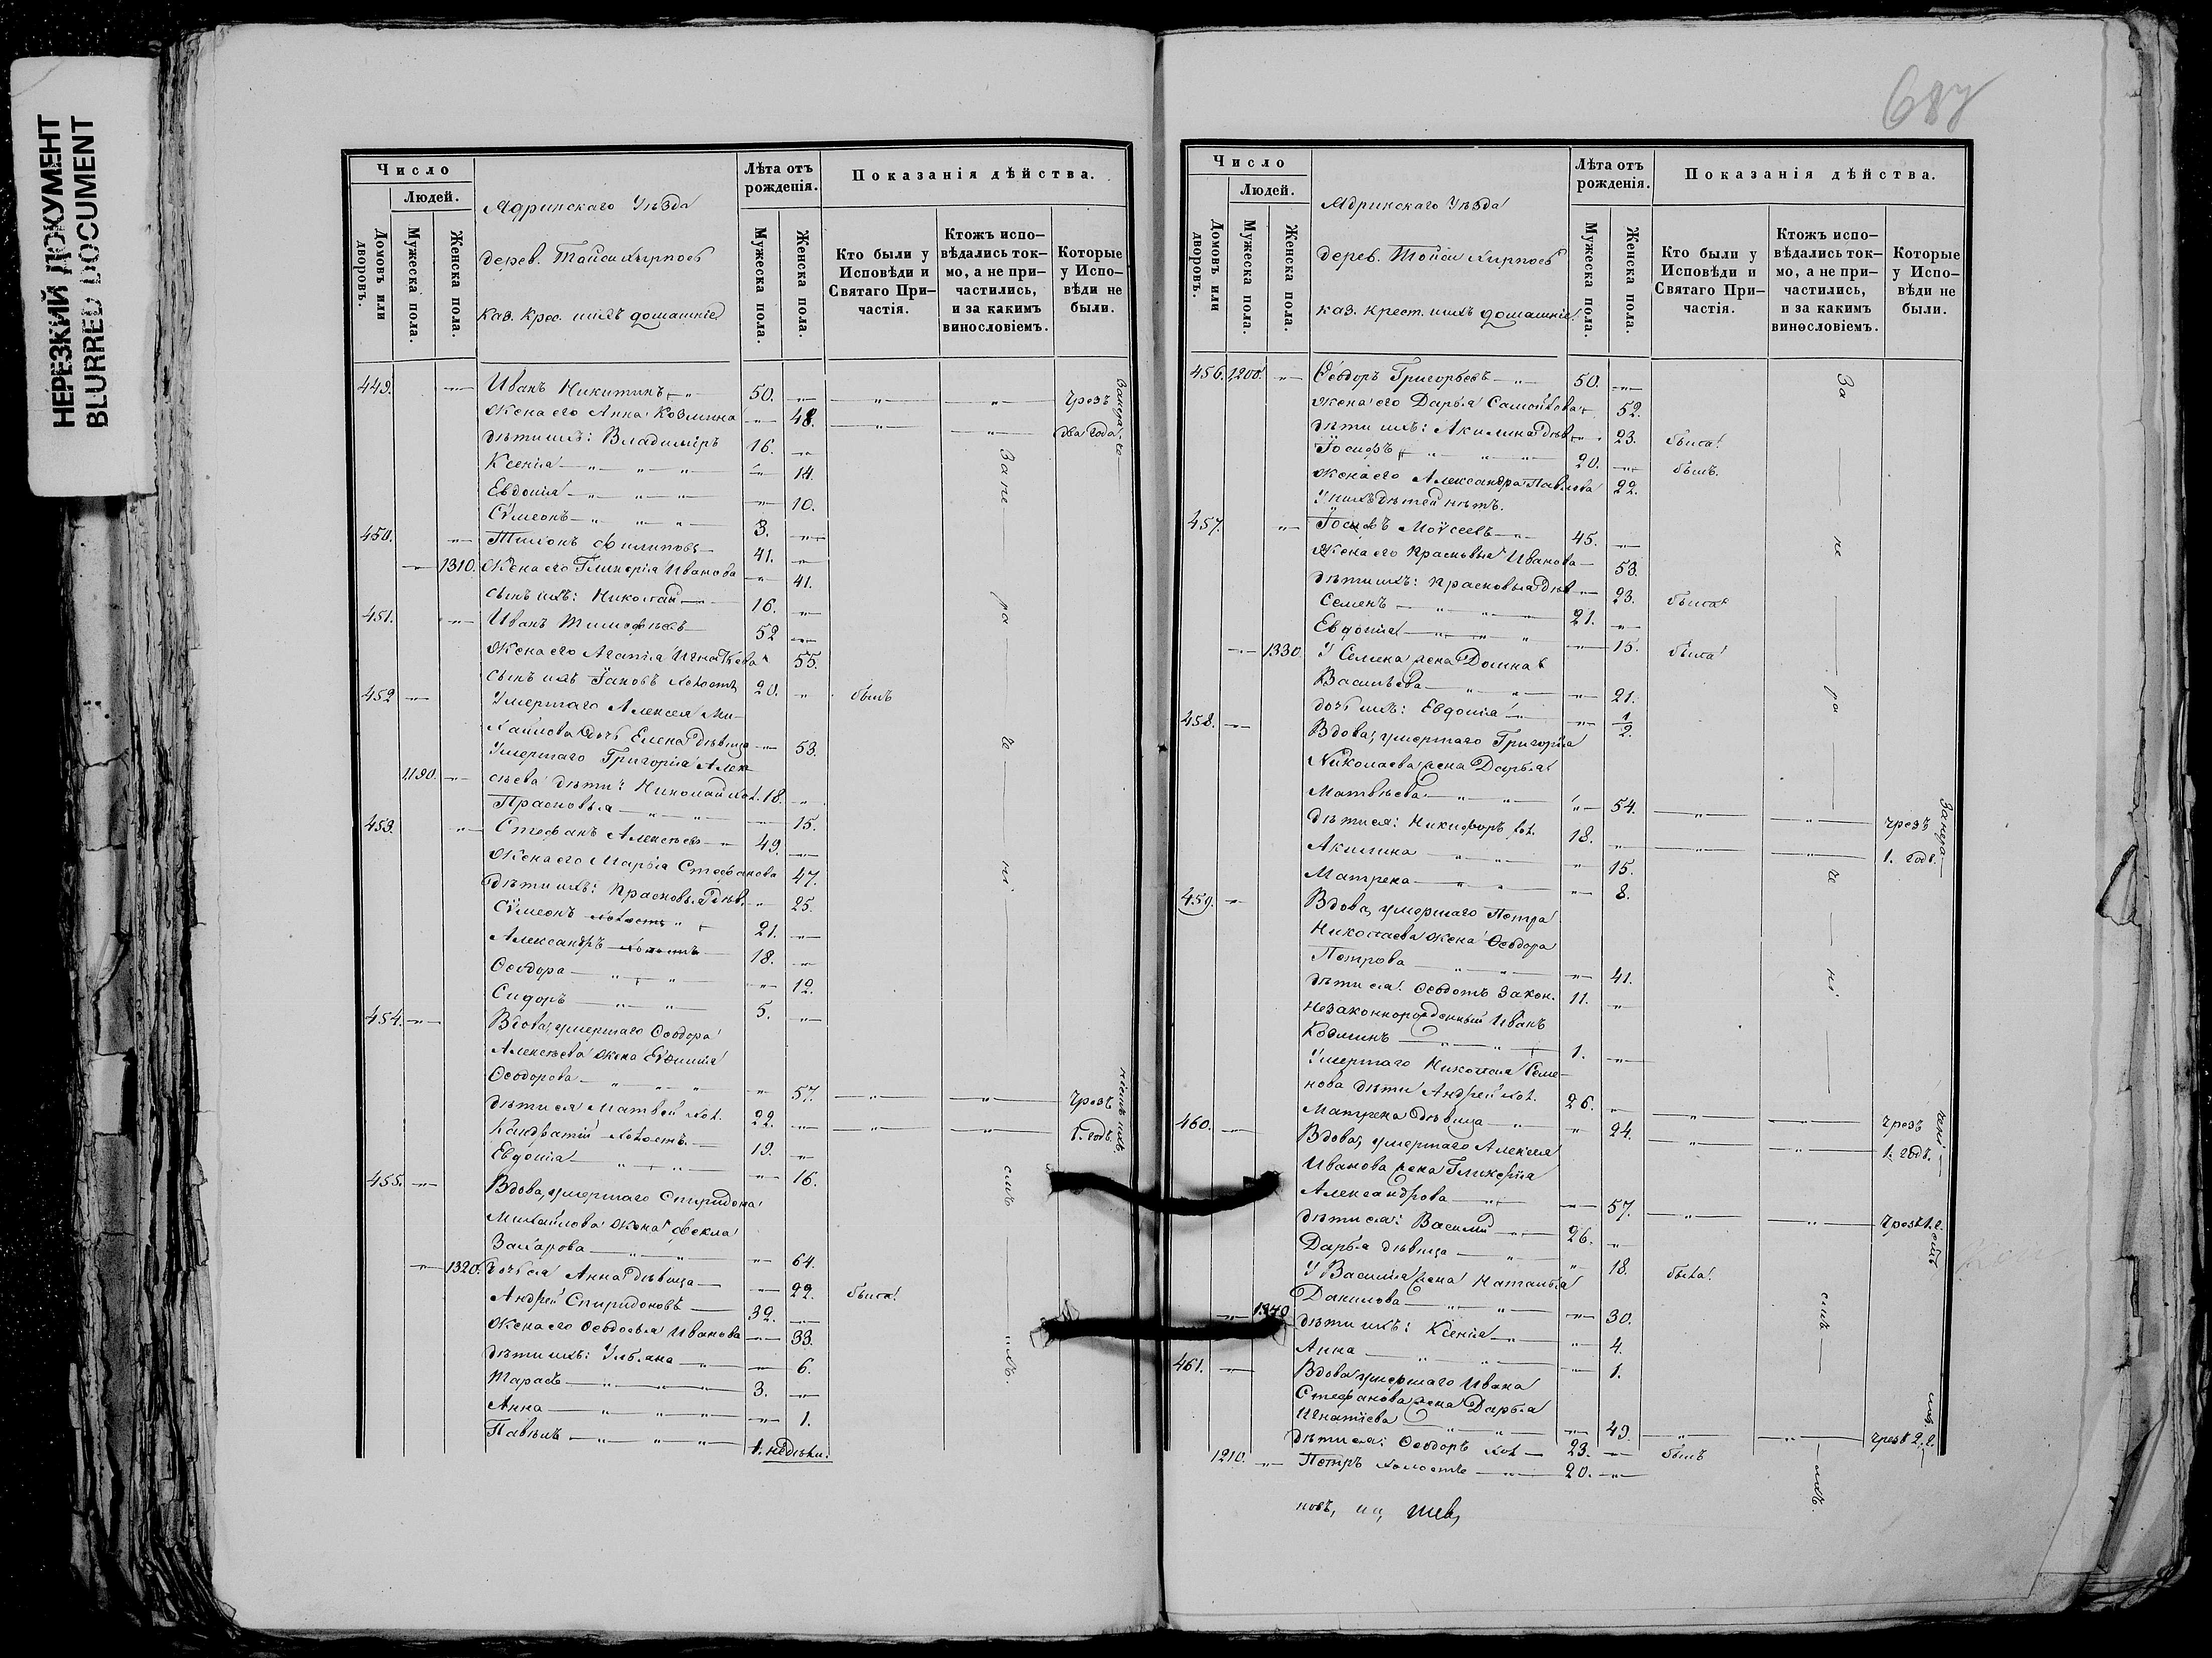 НЕРЕЗКИЙ ДОКУМЕНТ
BLURRED DOCUMENT
Число
Людей.
Домовъ или дворовъ.
Мужеска пола.
Женска пола.
Ядринскаго Уѣзда
дерев. Тойси Хирпосъ
каз. крес. ихъ домашніе
Лѣта отъ рожденія.
Мужеска пола.
Женска пола.
Показанія дѣйства.
Кто были у Исповѣди и Святаго Причастія.
Ктожъ исповѣдались токмо, а не причастились, и за какимъ винословіемъ.
Которые у Исповѣди не были.
449. Иванъ Никитинъ 50. чрезъ
Жена его Анна Козмина 48. два года
дѣти ихъ: Владиміръ 16.
Ксенія 14.
Евдокія 10.
Сѵмеонъ 3.
450. Филиповъ 41.
1310. Жена его Гликерія Иванова 41.
сынъ ихъ: Николай 16.
451. Иванъ Тимофѣевъ 52
Жена его Агапія 55.
сынъ ихъ Іаковъ холостъ 20. былъ
452 Умершаго Алексея Ми-
хайлова дочь Елена дѣвица 53.
Умершаго Григорія Алек-
1190. сѣева дѣти: Николай хол. 18.
Прасковья 15.
453. Стефанъ Алексѣевъ 49.
Жена его Марья Стефанова 47.
дѣти ихъ: Прасковья дѣв. 25.
Сѵмеонъ холостъ 21.
Александръ холостъ 18.
Ѳеодора 12.
Сидоръ 5.
454. Вдова, умершаго Ѳеодора
Алексѣева жена Евфимія
Ѳеодорова 57. чрезъ
дѣти ея Матвей хол. 22. 1. годъ.
Кандратій холостъ 19.
Евдокія 16.
455. Вдова, умершаго Спиридона
Михайлова жена Фекла
Захарова 64.
1320. дочь ея Анна дѣвица 22. была
Андрей Спиридоновъ 32.
Жена его Ѳеодосья Иванова 33.
дѣти ихъ: Ульяна 6.
Тарасъ 3.
Анна 1.
Павелъ 1. недѣли.
За не ра че ні емъ ихъ.
687
Число
Людей.
Домовъ или дворовъ.
Мужеска пола.
Женска пола.
Ядринскаго Уѣзда
дерев. Тойси Хирпосъ
каз. крест. ихъ домашніе
Лѣта отъ рожденія.
Мужеска пола.
Женска пола.
Показанія дѣйства.
Кто были у Исповѣди и Святаго Причастія.
Ктожъ исповѣдались токмо, а не причастились, и за какимъ винословіемъ.
Которые у Исповѣди не были.
456. 1200. Ѳеодоръ Григорьевъ 50.
Жена его Дарья Самойлова 52.
дѣти ихъ: Акилина дѣв. 23. была
Іосифъ 20. былъ.
Жена его Александра Павлова 22.
У нихъ дѣтей нѣтъ.
457. Іосифъ Моѵсеевъ 45.
Жена его Прасковья Иванова 53.
дѣти ихъ: Прасковья дѣв 23. была
Семенъ 21.
Евдокія 15. была
1330. У Семена жена Домна
Васильева 21.
дочь ихъ: Евдокія 1/2.
458. Вдова, умершаго Григорія
Николаева жена Дарья
Матвѣева 54. чрезъ
дѣти ея: Никифоръ хол. 18. 1. годъ.
Акилина 15.
Матрена 8.
459. Вдова, умершаго Петра
Николаева жена Ѳеодора
Петрова 41.
дѣти ея: Ѳеодотъ закон. 11.
незаконнорожденный Иванъ
Козминъ 1.
Умершаго Николая Семе-
нова дѣти Андрей хол. 26. чрезъ
460. Матрена дѣвица 24. 1. годъ.
Вдова, умершаго Алексея
Иванова жена Гликерія
Александрова 57. чрезъ 1. г.
дѣти ея: Василій 26.
Дарья дѣвица 18. была.
У Василія жена Наталья
Данилова 30.
1340 дѣти ихъ: Ксенія 4.
Анна 1.
461. Вдова умершаго Ивана
Стефанова жена Дарья
Игнатіева 49. чрезъ 2. г.
дѣти ея: Ѳеодоръ хол 23. былъ
1210. Петръ холостъ 20.
За не ра че ні емъ ихъ.